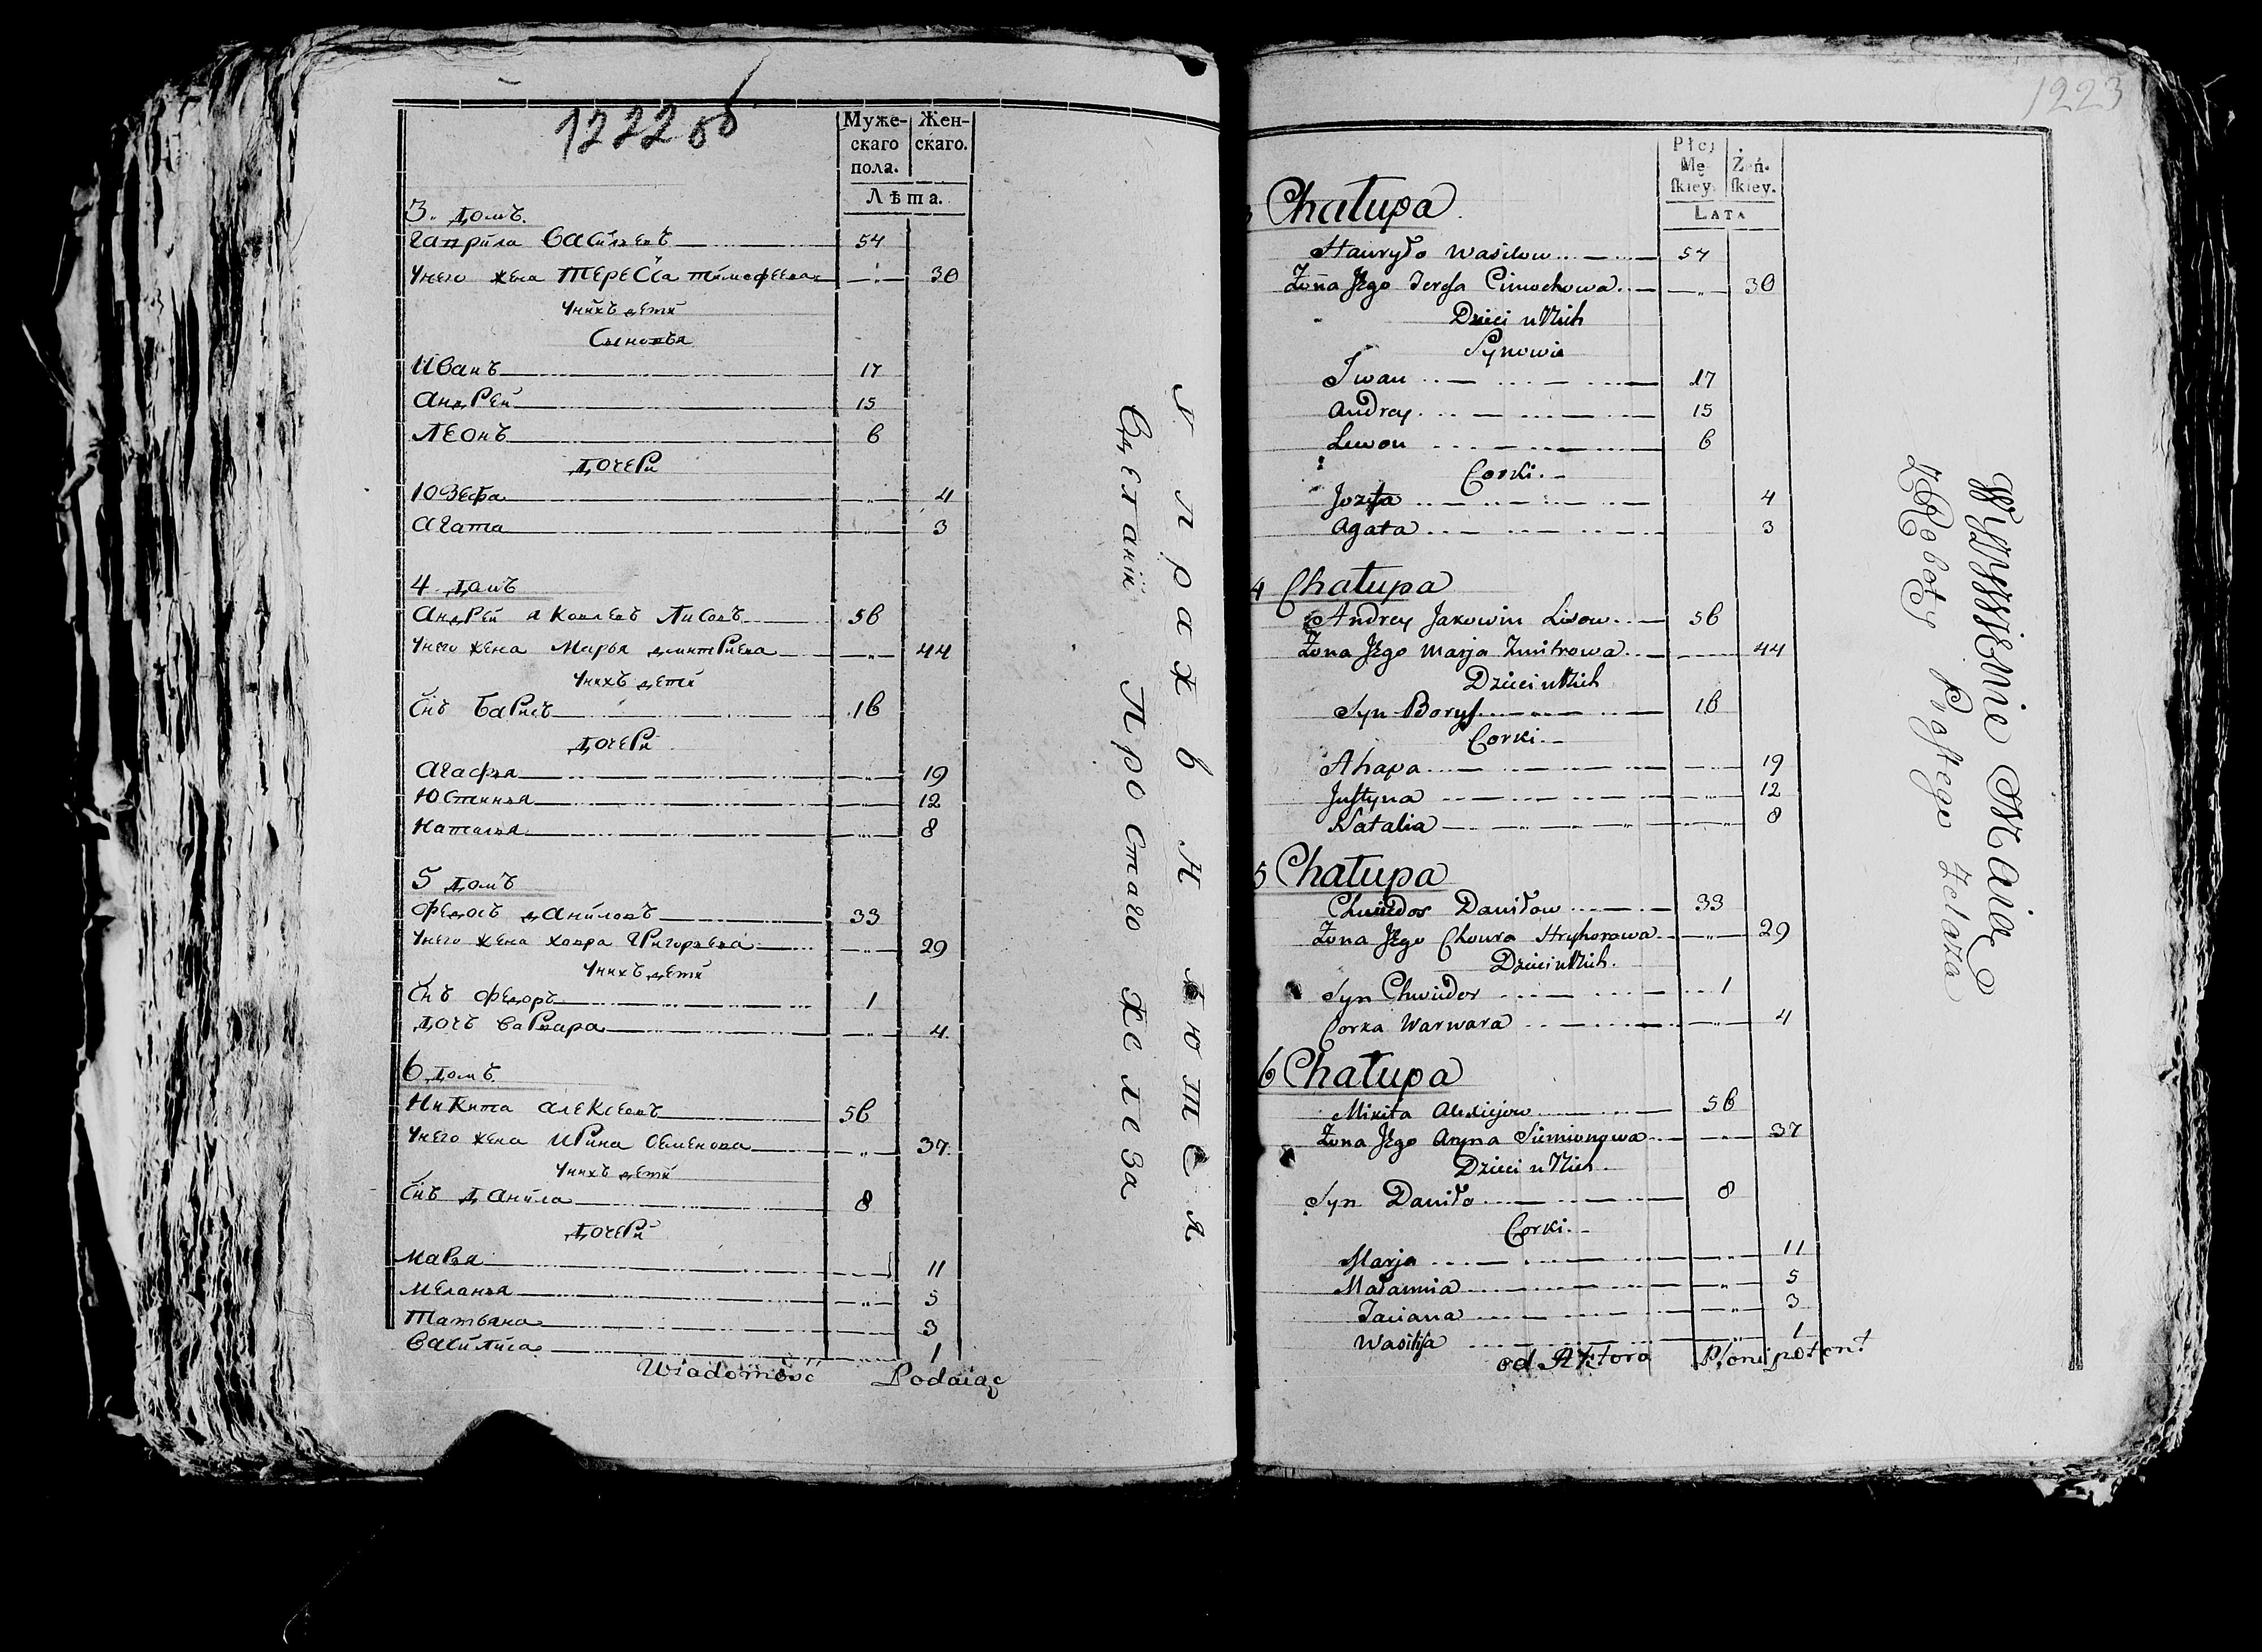 1222 об
Муже-
скаго
пола.
Жен-
скаго.
Лѣта.
3. домъ.
Гаврила Василевъ 54
Унего жена Тересса тимофеева 30
Унихъ дети
Сыновья
Иванъ 17
Андрей 15
Леонъ 6
дочери
Юзефа 4
Агата 3
4 домъ
Андрей Яковлевъ Лисовъ 56
Унего жена Марья дмитриева 44
Унихъ дети
Снъ Барисъ 16
дочери
Агафья 19
Юстинья 12
Наталья 8
5 домъ
Федосъ даниловъ 33
Унего жена ховра Григорьева 29
Унихъ дети
Снъ Федоръ 1
дочь Варвара 4
6 домъ
Никита алексеевъ 56
Унего жена Ирина Семенова 37
Унихъ дети
Снъ данила 8
дочери
Марья 11
Меланья 5
Татьяна 3
Василиса 1
Wiadomość Podaiąc
упражнѧютсѧ
Сделании Простаго Железа
1223
Płci
Mę
ſkiey.
Żeń.
ſkiey.
LATA
3 Chałupa
Hauryło Wasilow 54
Żona Jego Teresa Cimochowa 30
Dzieci u Nich
Synowie
Iwan 17
Andrey 15
Lewon 6
Corki
Jozefa 4
Agata 3
4 Chałupa
Andrey Jakowiu Lisow 56
Żona Jego Marja Zmitrowa 44
Dzieci u Nich
Syn Borys 16
Corki
Ahapa 19
Justyna 12
Natalia 8
5 Chałupa
Chwiedos Daniłow 33
Żona Jego Choura Hryhorowa 29
Dzieci u Nich.
Syn Chwiedor 1
Corka Warwara 4
6 Chałupa
Mikita Alexiejow 56
Żona Jego Aryna Siemionowa 37
Dzieci u Nich
Syn Daniło 8
Corki
Marja 11
Małannia 5
Taciana 3
Wasilisa 1
od Aktora Plenipotent
Prostego Żelaza